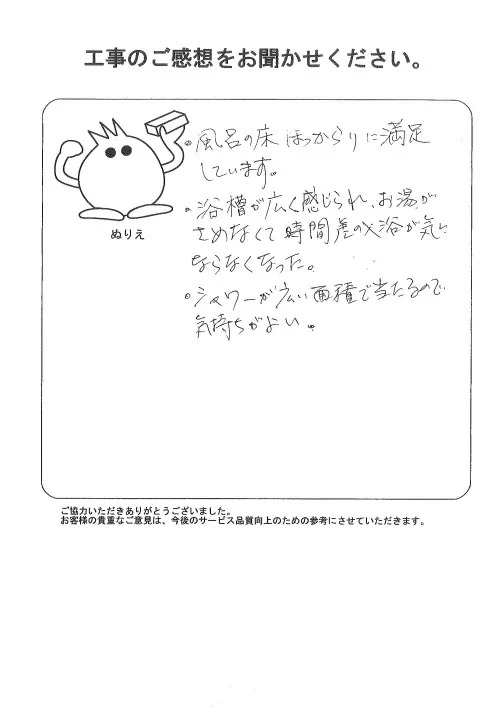 工事のご感想をお聞かせください。
ぬりえ
・風呂の床ほっからりに満足
しています。
・浴槽が広く感じられ、お湯が
さめなくて時間差の入浴が気に
ならなくなった。
・シャワーが広い面積で当たるので
気持ちがよい。
ご協力いただきありがとうございました。
お客様の貴重なご意見は、今後のサービス品質向上のための参考にさせていただきます。